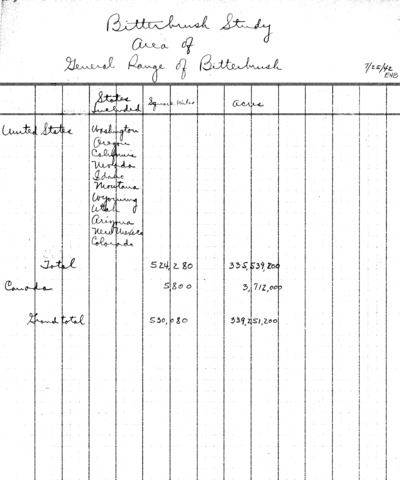 Bitterbrush Study
Area of
General Range of Bitterbrush
7/25/42
EHB
States Included Square Miles Acres
United States Washington
Oregon
California
Nevada
Idaho
Montana
Wyoming
Utah
Arizona
New Mexico
Colorado
Total 524,280 335,539,200
Canada 5,800 3,712,000
Grand total 530,080 339,251,200